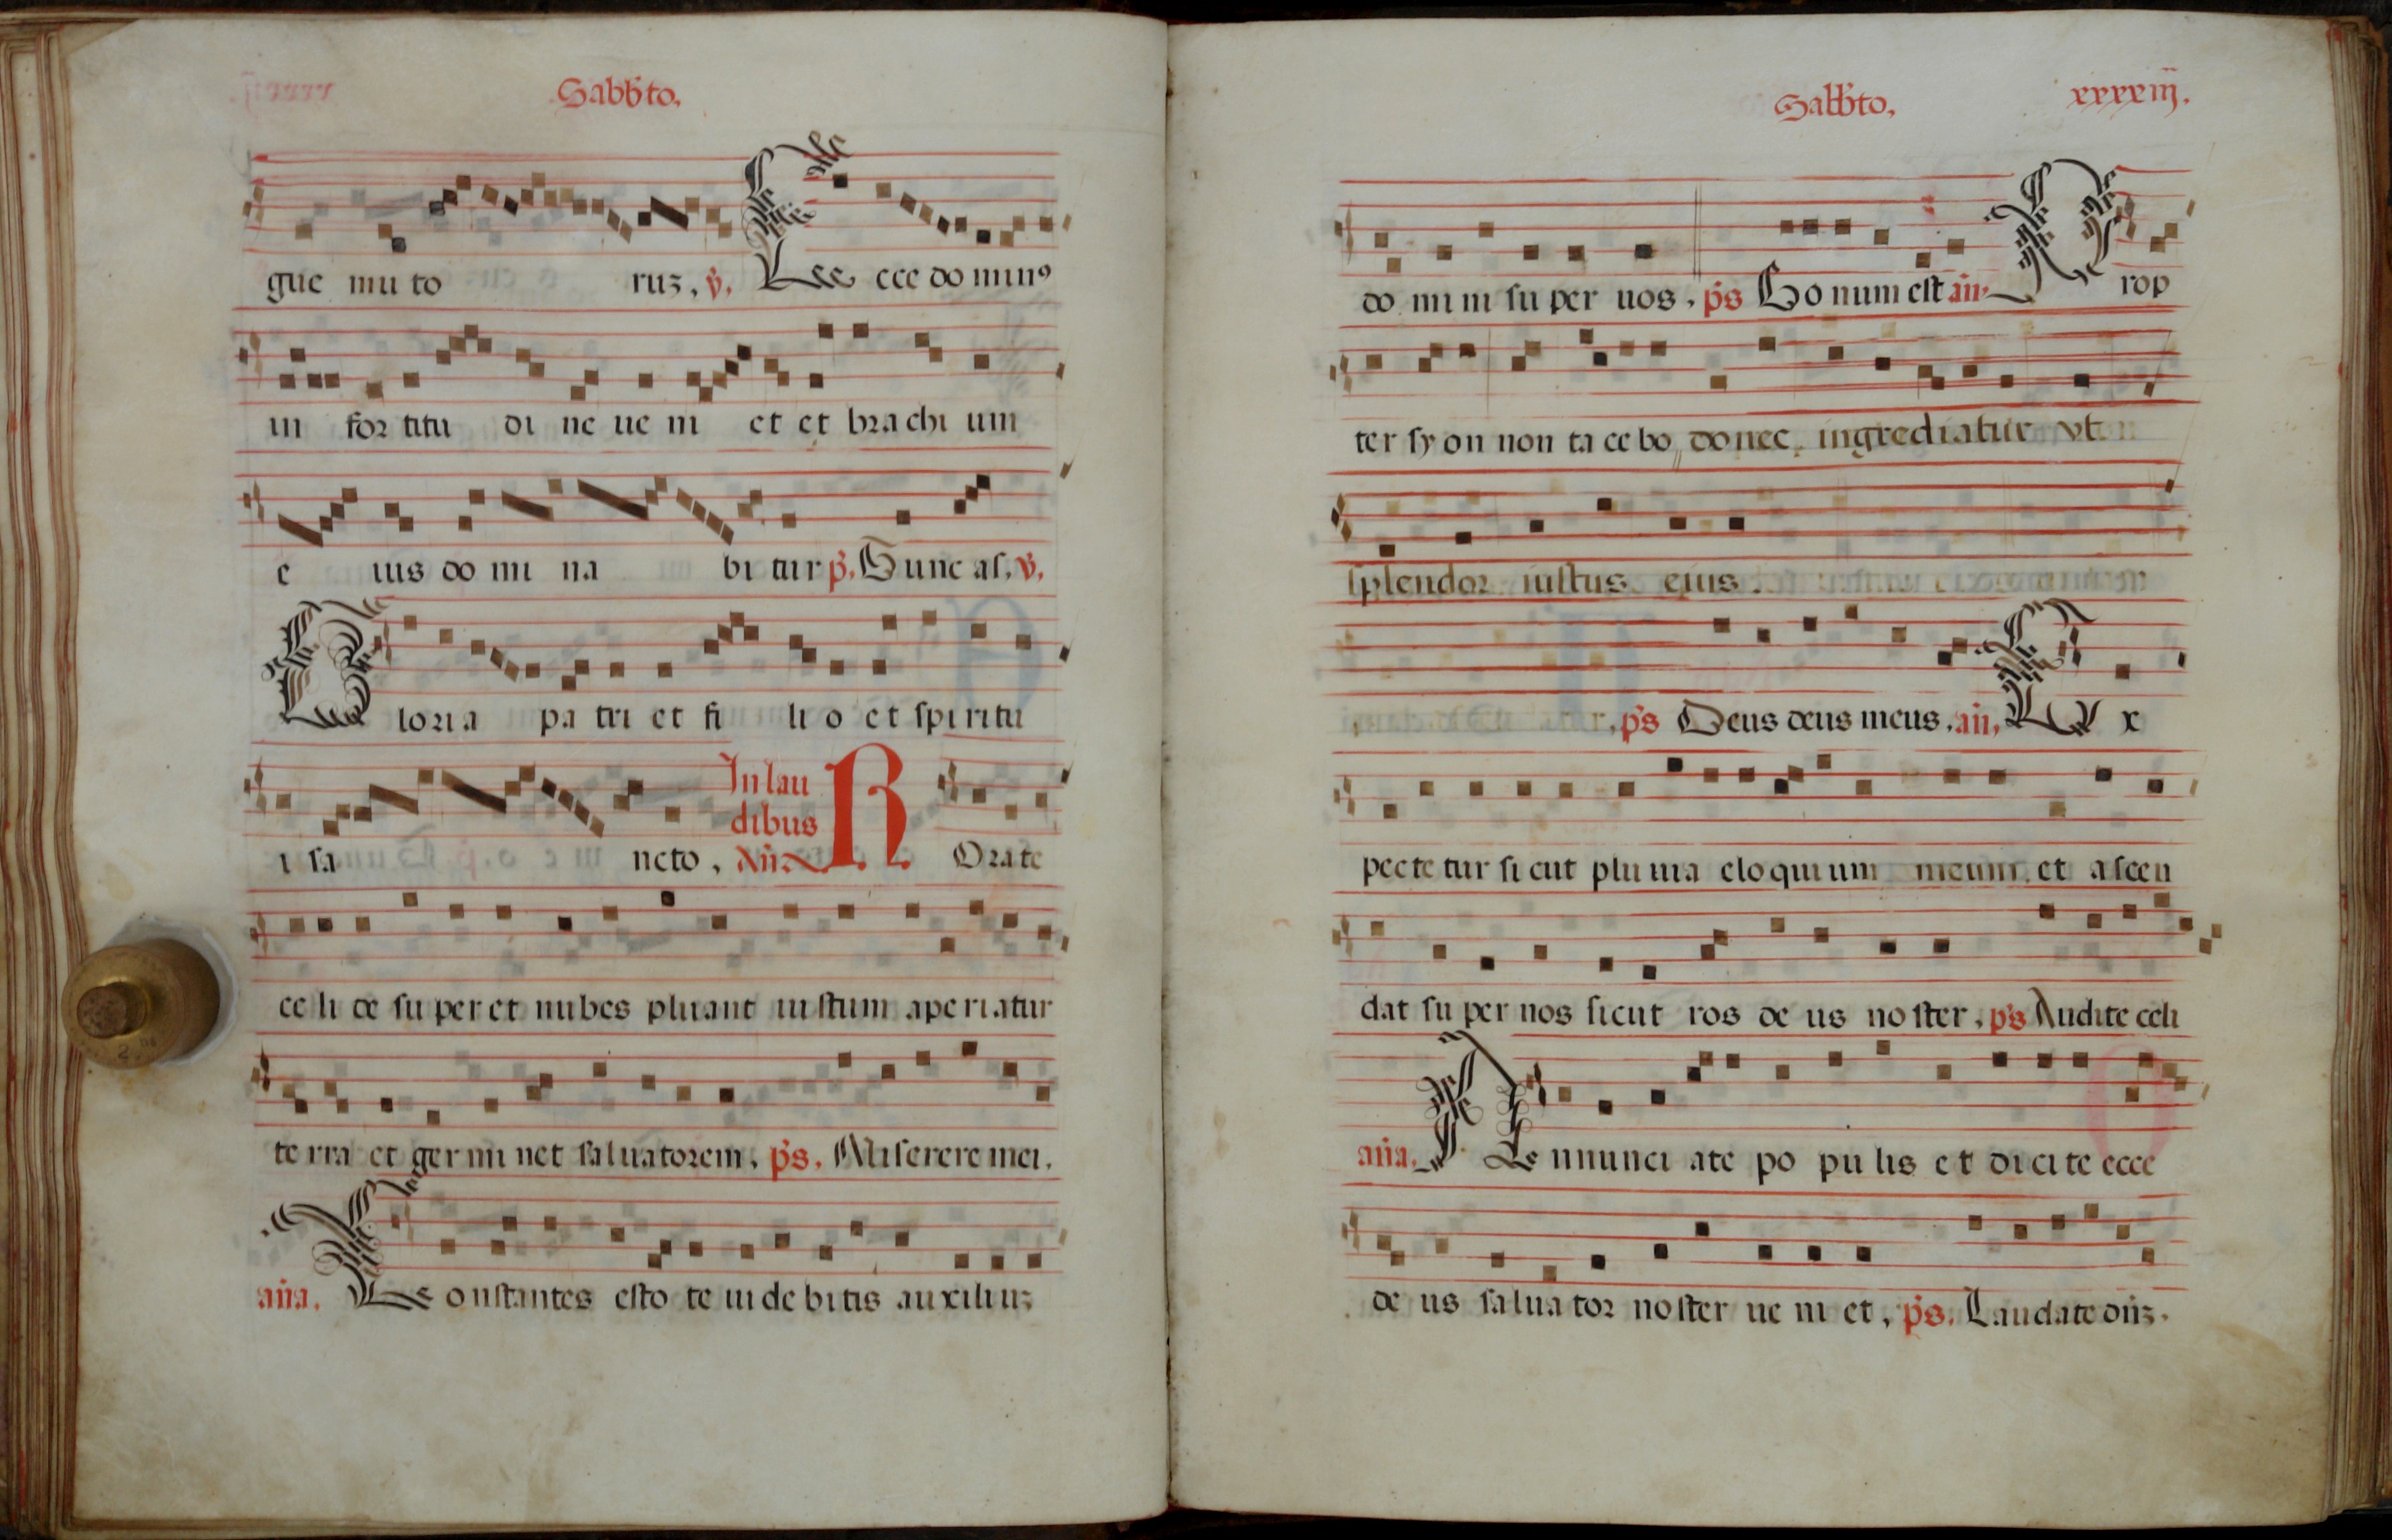 Sabb̄to.
gue mu to ruʒ. v̄. Ecce ecce do minꝰ
in for titu di ne ue ni et et brachi um
e ius do mi na bi tur p̄. Hunc aſ. v̄.
Gloria pa tri et fi li o et ſpiritu
i ſa ncto. In lau dibus añ. Rorate
celi de ſu per et nubes pluant iuſtum aperiatur
te rra et ger mi net ſaluatorem. p̄s. Miſerere mei.
aña. Conſtantes eſto te uide bi tis auxiliuʒ
Sabb̄to. xxxxiij.
do mi ni ſu per uos. p̄s Bonum eſt añ. Prop
ter ſyon non ta ce bo donec ingrediatur vt
ſplendor iuſtus eius.
p̄s Deus deus meus. añ. Ex
pecte tur ſi cut plu uia eloqui um meum et aſcen
dat ſu per nos ſicut ros de us no ſter. p̄s Audite celi
aña. Annunci ate po pu lis et di ci te ecce
de us ſalua tor noſter ue ni et. p̄s. Laudate dn̄ʒ.